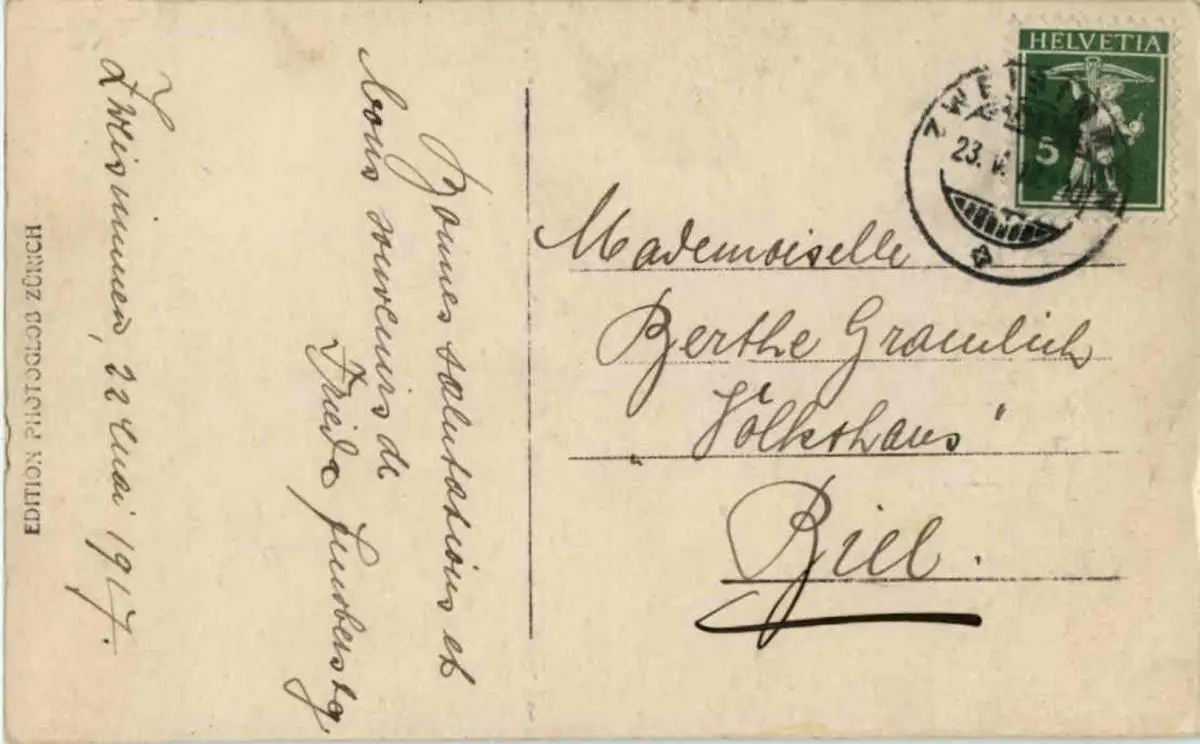 Zweisimmen, 22 mai 1917.
Bonnes salutations et
bons souvenirs de
Frieda
EDITION PHOTOGLOB ZÜRICH
HELVETIA
5
ZWEISIMMEN
23. V.
Mademoiselle
Berthe Gramlich
„Volkshaus“
Biel.